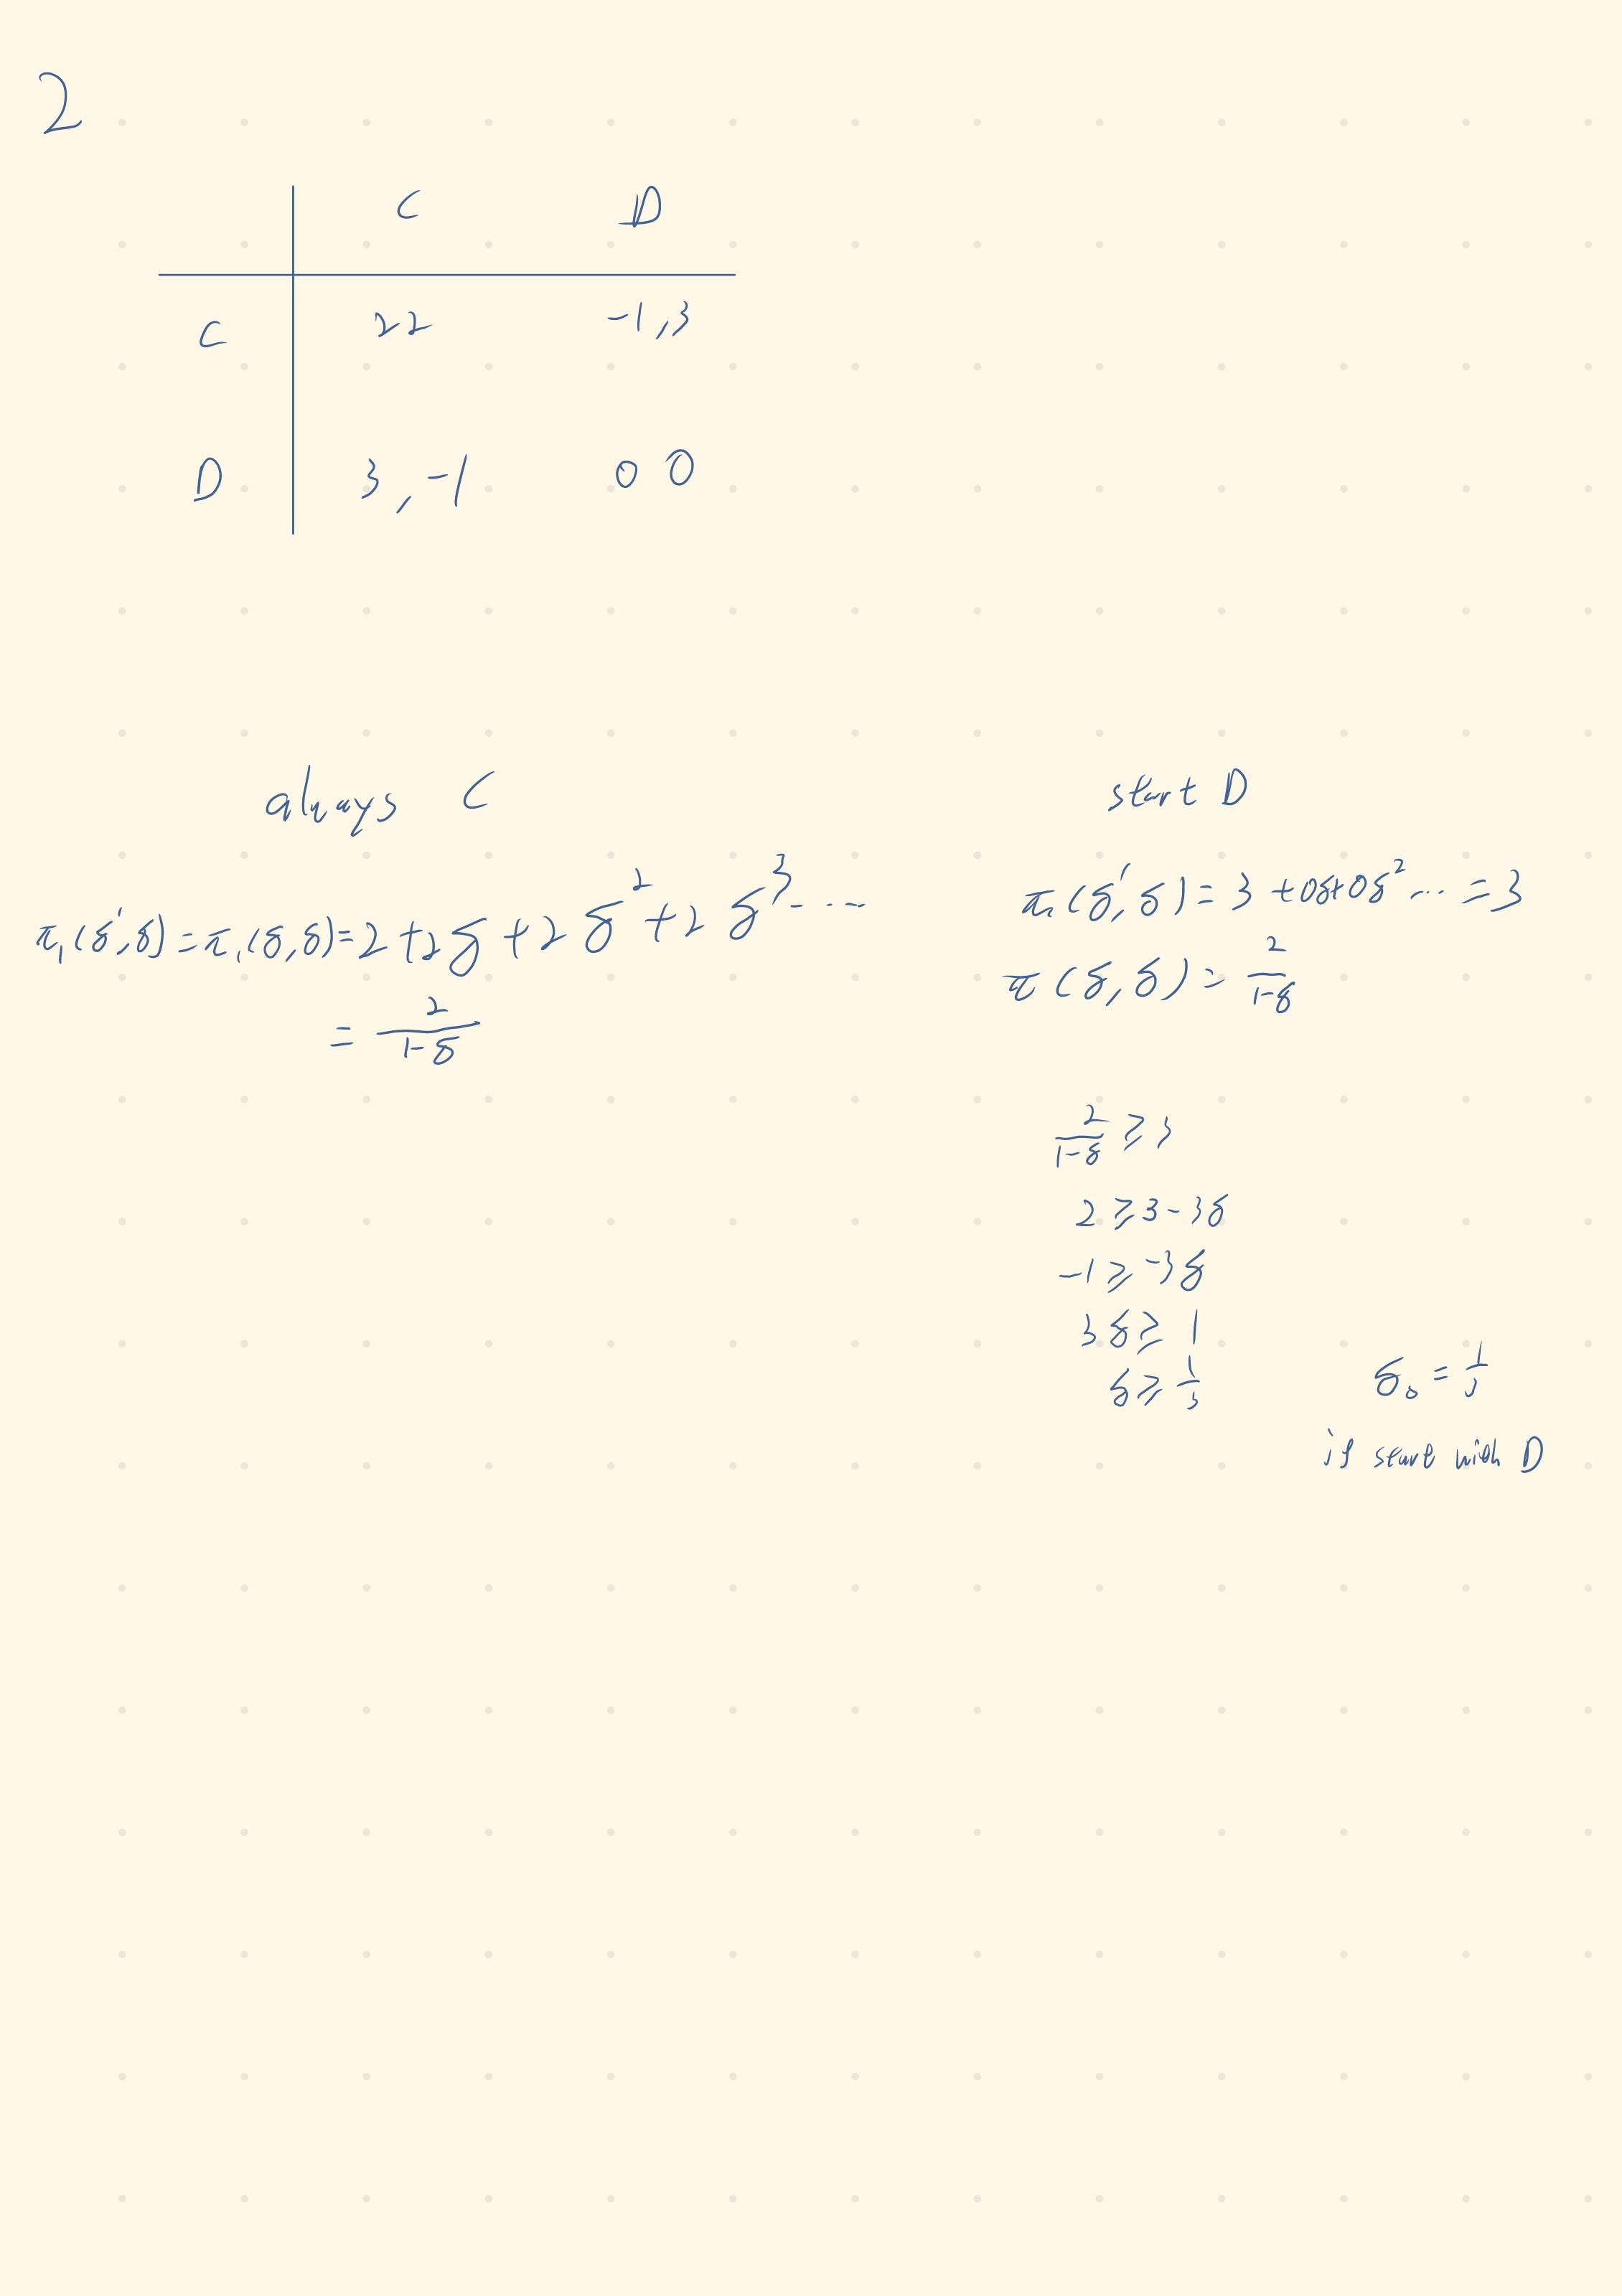 2
C D
C 22 -1,3
D 3,-1 0 0
always C
π₁(δ',δ)=π₁(δ,δ)=2+2δ+2δ²+2δ³-...
= 2/(1-δ)
start D
π₁(δ',δ)=3+0δ+0δ²...=3
π(δ,δ)= 2/(1-δ)
2/(1-δ) ≥ 3
2≥3-3δ
-1≥-3δ
3δ≥1
δ≥1/3
δ₀=1/3
if start with D